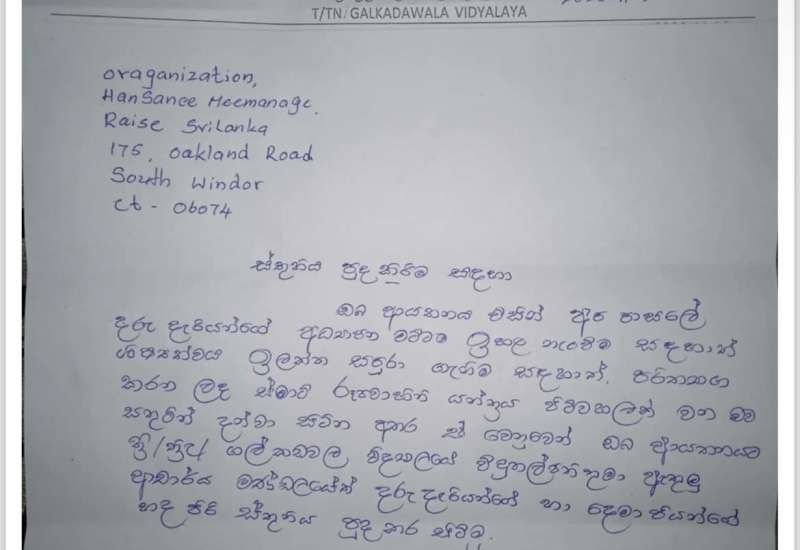 T/TN/GALKADAWALA VIDYALAYA
oraganization,
Hansance Heemanage.
Raise Srilanka
175, Oakland Road
South Windor
ct - 06074
ස්තුතිය පුද කිරීම සඳහා
ඔබ ආයතනය විසින් අප පාසලේ
දරු දැරියන්ගේ අධ්‍යාපන මට්ටම ඉහල නැංවීම සඳහාත්
ඉලක්ක සපුරා ගැනීම සඳහාත්, පරිත්‍යාග
කරන ලද ස්මාට් රූපවාහිනී යන්ත්‍රය පිටිවහලක් වන බව
සතුටින් දන්වා සිටින අතර ඒ වෙනුවෙන් ඔබ ආයතනයට
ත්‍රි/ත්‍රිද/ ගල්කඩවල විද්‍යාලයේ විදුහල්පතිතුමා ඇතුළු
ආචාර්ය මණ්ඩලයේත් දරු දැරියන්ගේ හා දෙමාපියන්ගේ
හද පිරි ස්තුතිය පුද කර සිටිමු.